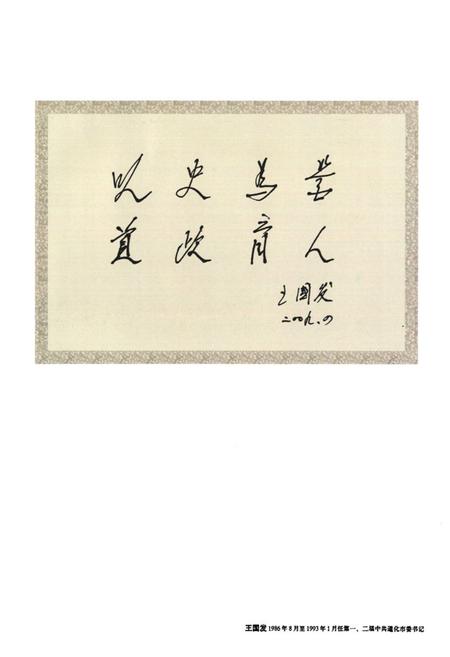 以史为鉴
资政育人
王國发
二00九.四
王国发 1986年8月至1993年1月任第一、二届中共通化市委书记